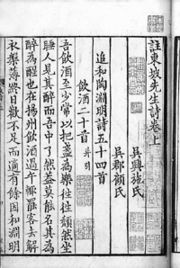 註東坡先生詩卷上
吳興施氏
吳郡顧氏
追和陶淵明詩五十四首
飲酒二十首 并引
吾飲酒至少常以把盞為樂往往頹然坐
睡人見其醉而吾中了然蓋莫能名其為
醉為醒也在揚州飲酒過午輒罷客去解
衣槃礴終日歡不足而適有餘因和淵明